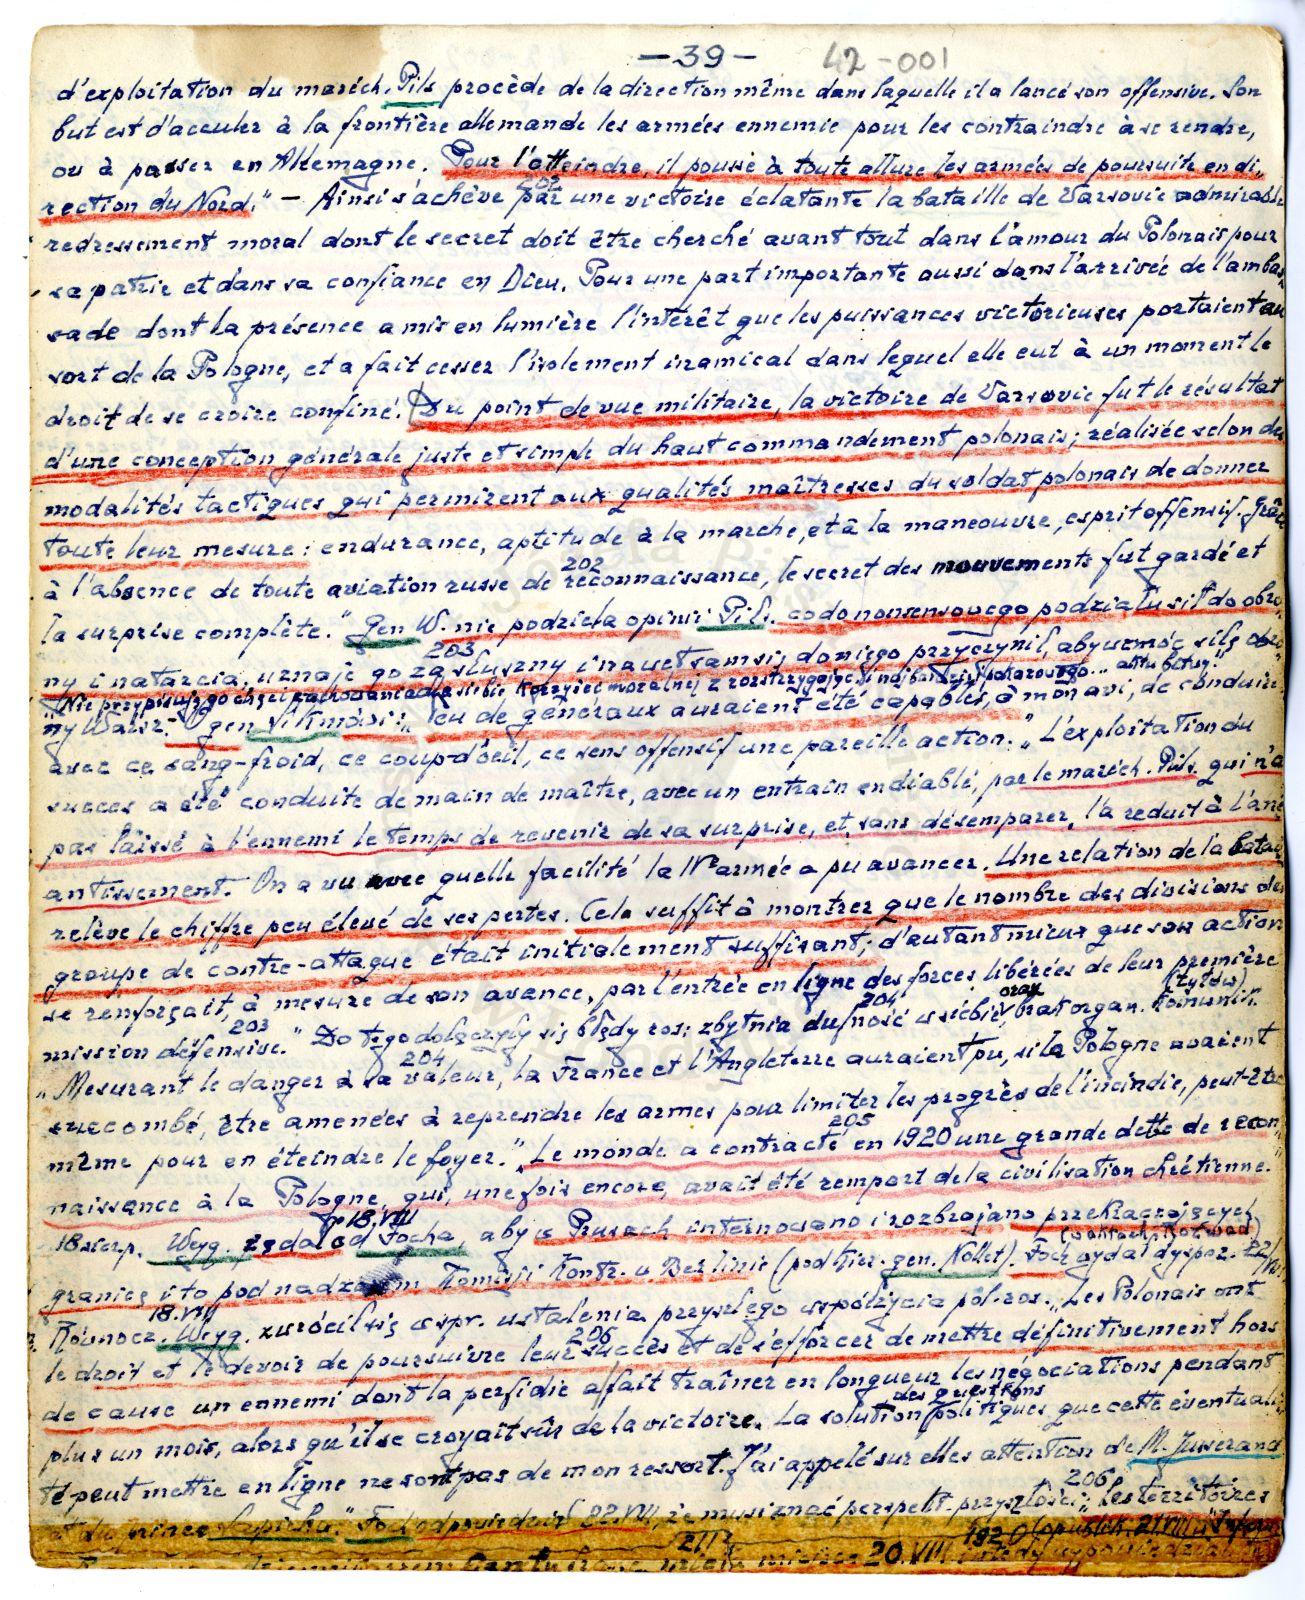 — 39 — 42-001
d'exploitation du maréch. Pils procède de la direction même dans laquelle il a lancé son offensive. Son
but est d'acculer à la frontière allemande les armées ennemie pour les contraindre à se rendre,
ou à passer en Allemagne. Pour l'atteindre, il pousse à toute allure les armées de poursuite en di„
rection du Nord." — 202 Ainsi s'achève par une victoire éclatante la bataille de Varsovie admirable
redressement moral dont le secret doit être cherché avant tout dans l'amour du Polonais pour
sa patrie et dans sa confiance en Dieu. Pour une part importante aussi dans l'arrivée de l'ambas
sade dont la présence a mis en lumière l'interêt que les puissances victorieuses portaient au
sort de la Pologne, et a fait cesser l'isolement inamical dans lequel elle eut à un moment le
droit de se croire confiné. (Du point de vue militaire, la victoire de Varsovie fut le résultat
d'une conception générale juste et simple du haut commandement polonais; réalisée selon des
modalités tactiques qui permirent aux qualités maîtresses du soldat polonais de donner
toute leur mesure: endurance, aptitude à la marche, et à la maneouvre, esprit offensif. Grâce
à l'absence de toute aviation russe de reconnaissance, le secret des mouvements fut gardé et
la surprise complète." 202 Gen W. nie podziela opinii Pils. co do nonsensowego podziału sił do obro„
ny i natarcia, uznaje go za słuszny i nawet sam się do niego przyczynił, aby wzmóc siłę
„Nie przypisuję go chęci zachowania dla siebie korzyści moralnej z rozstrzygającego i najbardziej
ny Walsz. O gen Sik. mówi: „Peu de généraux auraient été capables, à mon avi, de conduire
avec ce sang-froid, ce coup-d'oeil, ce sens offensif une pareille action." „L'exploitation du
succes a été conduite de main de maître, avec un entrain endiablé, par le maréch. Pils, qui n'a
pas laissé à l'ennemi le temps de revenir de sa surprise, et, sans désemparer, l'a reduit à l'ané
antissement. On a vu avec quelle facilité la IVe armée a pu avancer. Une relation de la batai
relève le chiffre peu élevé de ses pertes. Cela suffit à montrer que le nombre des divisions des
groupe de contre-attaque était initialement suffisant; d'autant mieux que son action
se renforçait, à mesure de son avance, par l'entrée en ligne des forces libérées de leur première
mission défensive." 203 Do tego dołączyły się błędy ros: zbytnia dufność w siebie, oraz brak organ. (tyłów) komunik.
„Mesurant le danger à sa valeur, la France et l'Angleterre auraient pu, si la Pologne avaient
succombé, être amenées à reprendre les armes pour limiter les progrès de l'incindie, peut-être
même pour en éteindre le foyer." 205 „Le monde a contracté en 1920 une grande dette de recon„
naissance à la Pologne, qui, une fois encore, avait été rempart de la civilisation chrétienne."
18 sierp. Weyg. żądał 18.VIII od Focha, aby w Prusach internowano i rozbrajano przekraczających
granicę i to pod nadzorem Komisji Kontr. w Berlinie (pod kier. gen. Nollet). Foch wydał dyspoz. 22/VIII
Równocz. 18.VIII Weyg. zwrócił się w spr. ustalenia przyszłego współżycia pol-ros. „Les Polonais ont
le droit et le devoir de poursuivre leur succès et de s'efforcer de mettre définitivement hors
de cause un ennemi dont la perfidie a fait traîner en longueur les négociations pendant
plus un mois, alors qu'il se croyait sûr de la victoire. La solution des questions politiques que cette éventuali„
té-peut mettre en ligne ne sont pas de mon ressort. J'ai appelé sur elles attention de M. Jusserand
et du prince Sapieha." 206 Foch odpowiedział (22.VIII, że musi znać perspekt. przyszłości: „les territoires
211 1920 20.VIII